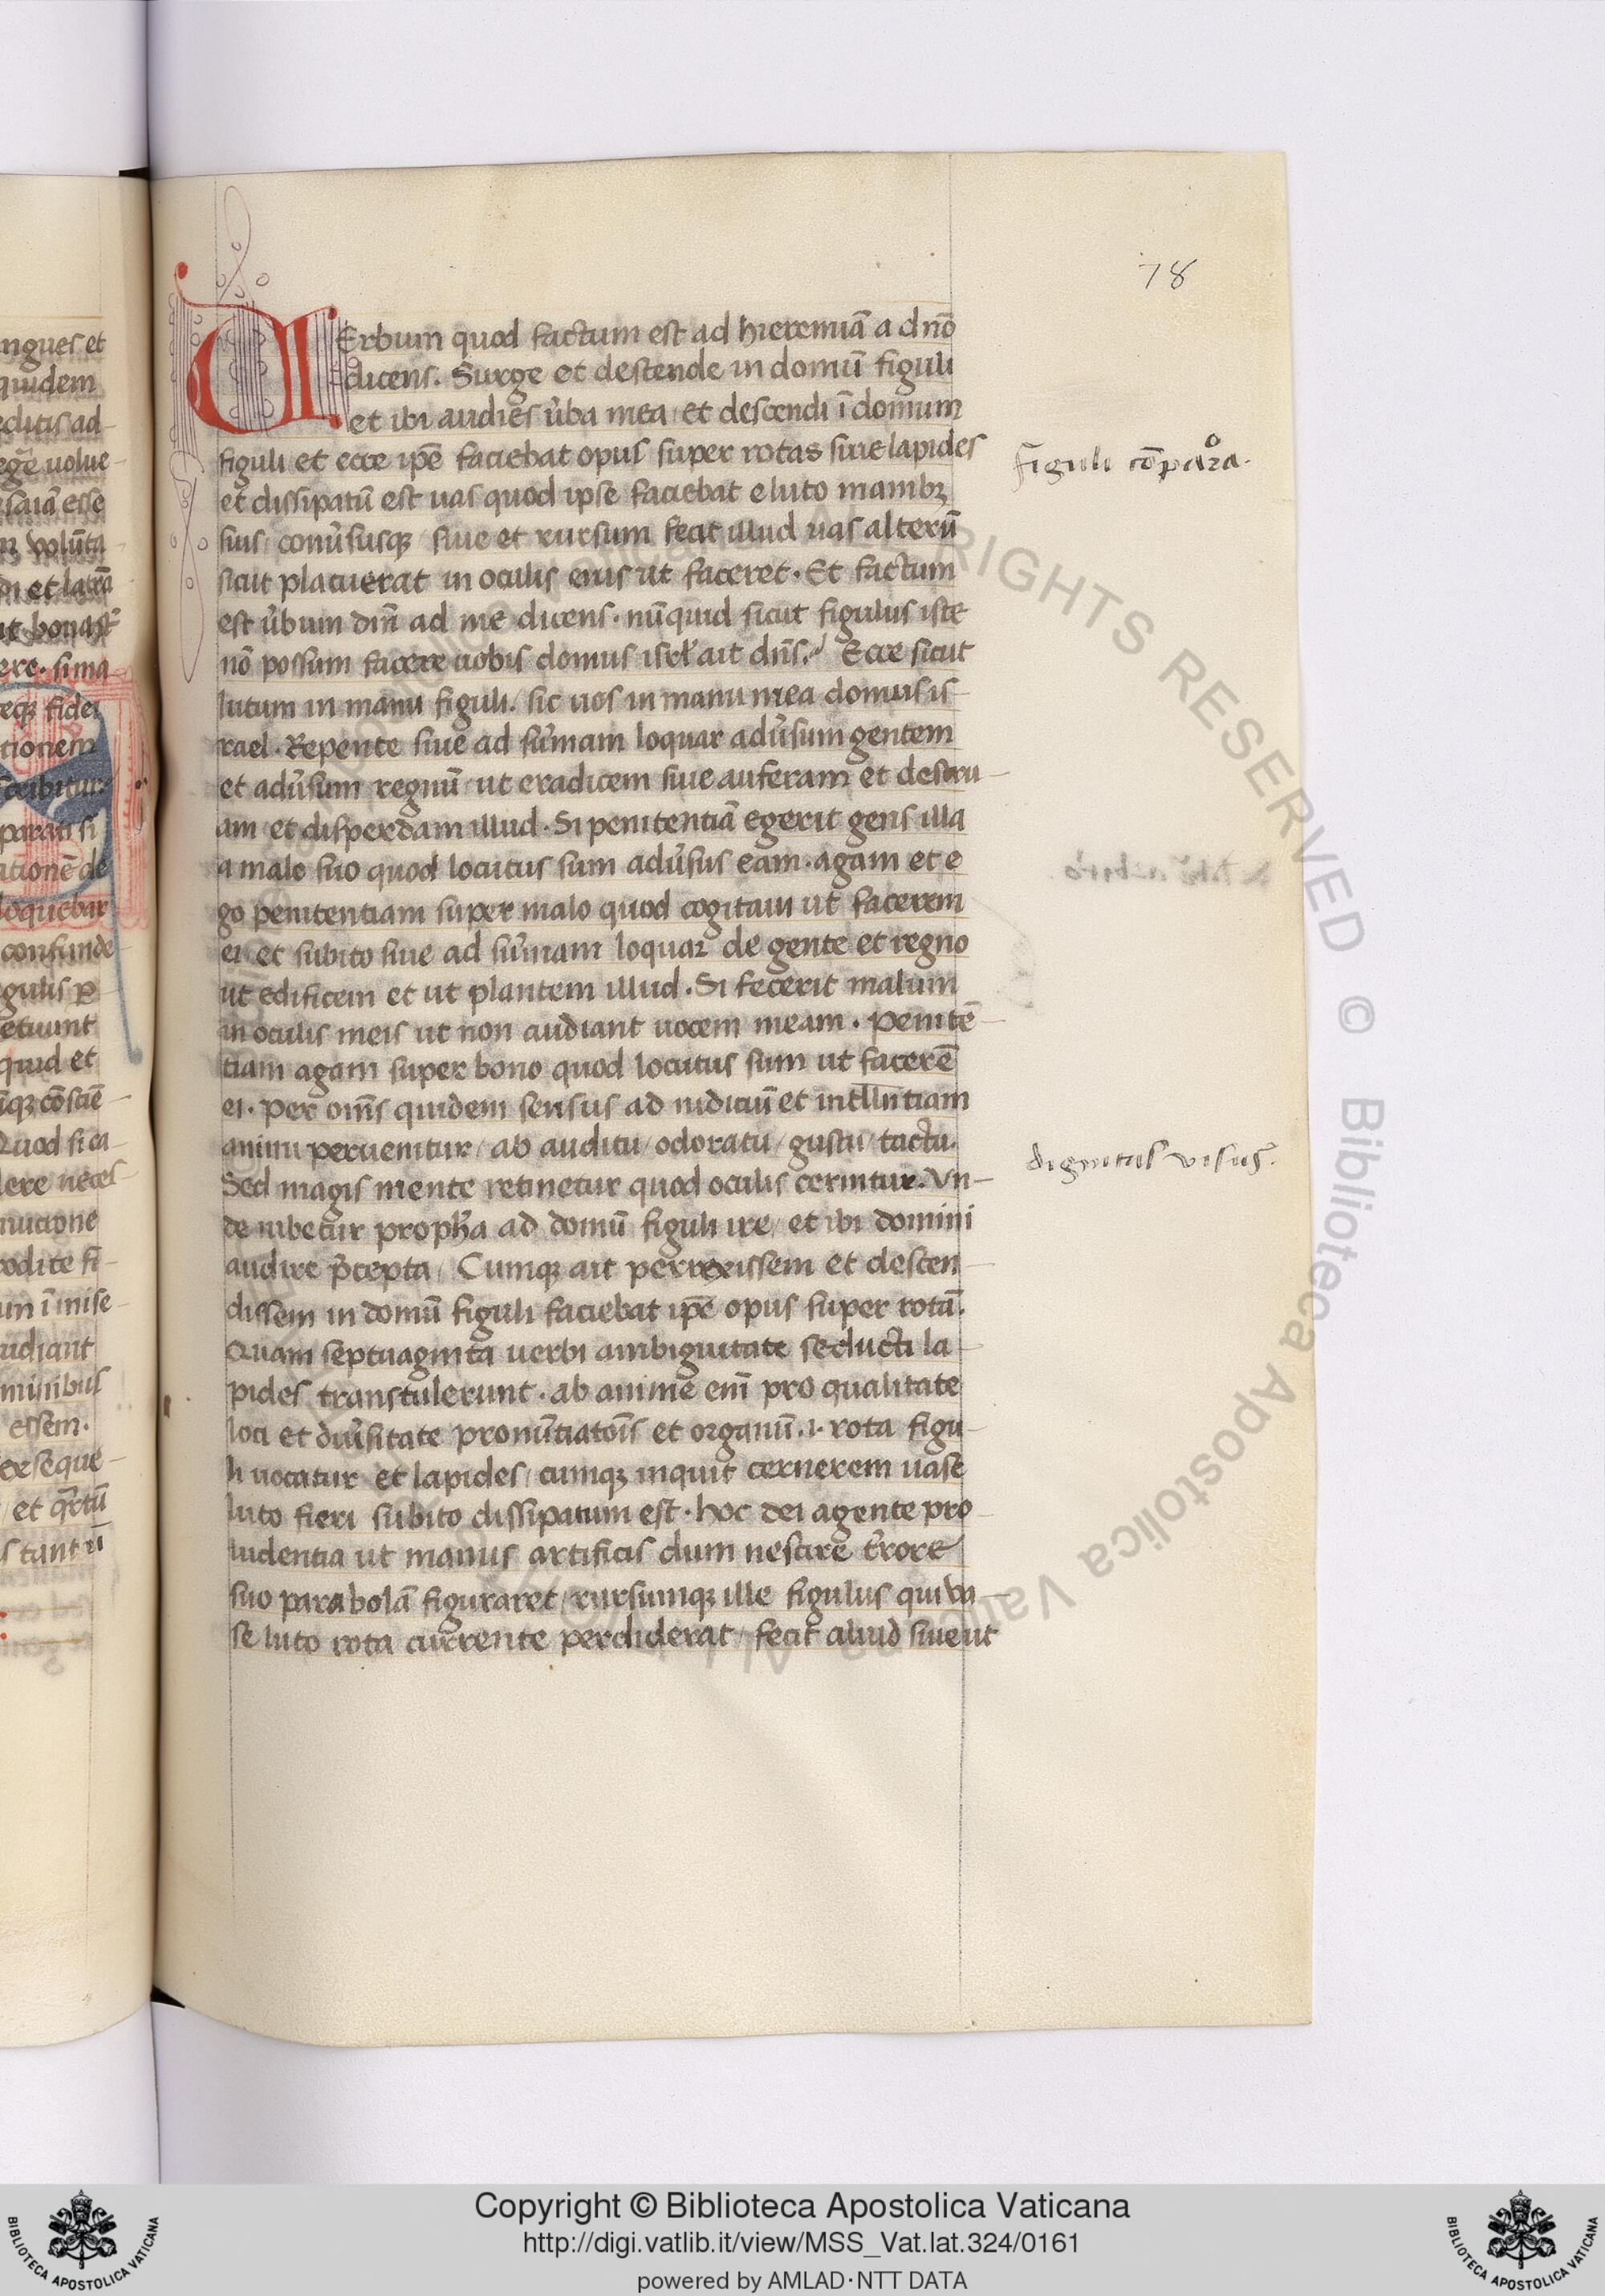 78
VErbum quod factum est ad hieremiā a dnō
dicens. Surge et descende in domū figuli
et ibi audies ûba mea et descendi ī domum
figuli et ecce ip̄e faciebat opus super rotas siue lapides
et dissipatū est uas quod ipse faciebat e luto manibꝫ
suis conûsusqꝫ siue et rursum fecit illud uas alterū
sicut placuerat in oculis eius ut faceret. Et factum
est ûbum dn̄i ad me dicens. nūquid sicut figulus iste
nō possum facere uobis domus isrl̄ ait dn̄s. Ecce sicut
lutum in manu figuli. sic uos in manu mea domus is-
rael. Repente siue ad sūmam loquar adûsum gentem
et adûsum regnū ut eradicem siue auferam et destru-
am et disperdam illud. Si penitentiā egerit gens illa
a malo suo quod locutus sum adûsus eam. agam et e
go penitentiam super malo quod cogitaui ut facerem
ei et subito siue ad sūmam loquar de gente et regno
ut edificem et ut plantem illud. Si fecerit malum
in oculis meis ut non audiant uocem meam. penitē-
tiam agam super bono quod locutus sum ut facerē
ei. per omīs quidem sensus ad iudiciū et intll̄ntiam
animi peruenitur/ ab auditu/ odoratu/ gustu/ tactu.
Sed magis mente retinetur quod oculis cernitur. Vn-
de iubetur proph̄a ad domū figuli ire/ et ibi domini
audire p̄cepta/ Cumqꝫ ait perrexissem et descen-
dissem in domū figuli faciebat ip̄e opus super rotā.
Quam septuaginta uerbi ambiguitate seducti la-
pides transtulerunt. ab anime enī pro qualitate
loci et diûsitate pronūtiatōis et organū .i. rota figu-
li uocatur et lapides/ cumqꝫ inquit cernerem uas e
luto fieri subito dissipatum est. hoc dei agente pro
uidentia ut manus artificis dum nescire êrore
suo parabolā figuraret/ rursumqꝫ ille figulus qui va-
se luto rota currente perdiderat/ fecit aliud siue ut
figuli cōparao.
dignitas visus.
ngues et
quidem
editis ad-
uolue-
esse
et
ere. si ma
fidei
tionem
scribitur
parati si
ationē de
loquebar
confunde-
gulis
quid et
cōsciē-
Quod si ca-
dere neces-
essem.
erseque-
Copyright © Biblioteca Apostolica Vaticana
http://digi.vatlib.it/view/MSS_Vat.lat.324/0161
powered by AMLAD·NTT DATA
BIBLIOTECA APOSTOLICA VATICANA
BIBLIOTECA APOSTOLICA VATICANA
ALL RIGHTS RESERVED © Biblioteca Apostolica Vaticana